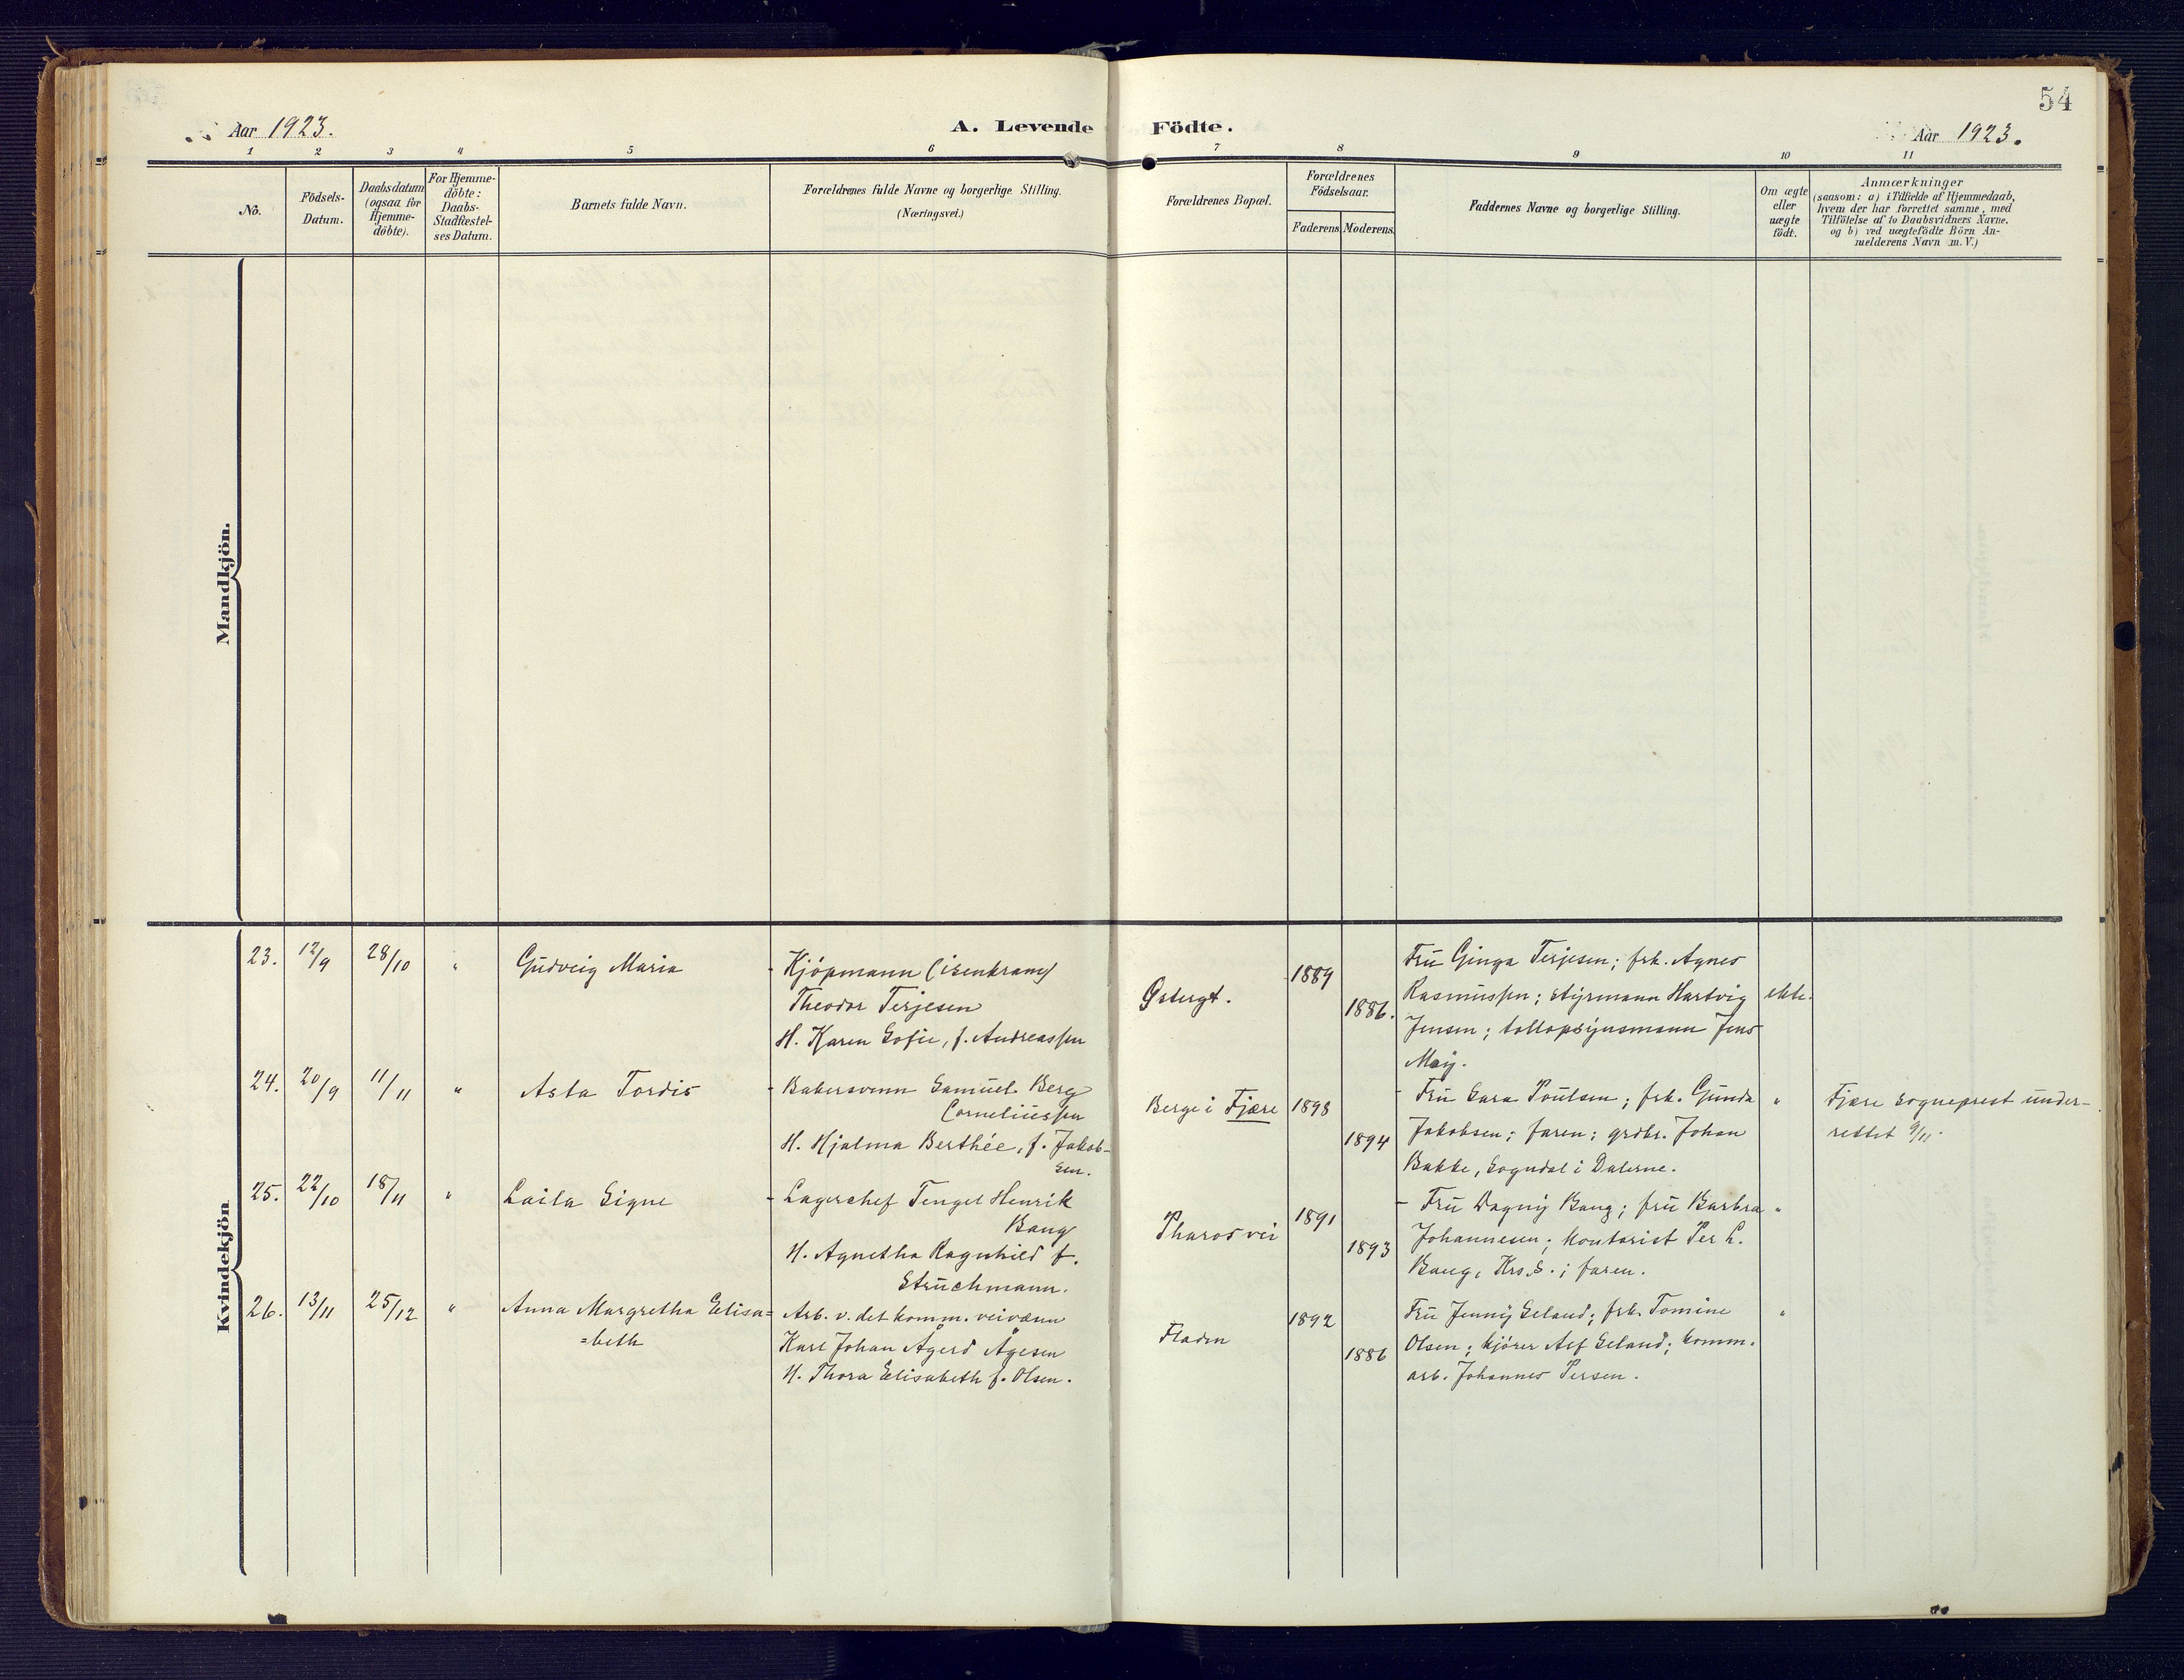 54
Aar 1923.
A. Levende Födte.
Aar 1923.
1 2 3 4 5 6 7 8 9 10 11
No.
Födsels-
Datum.
Daabsdatum
(ogsaa for
Hjemme-
döbte).
For Hjemme-
döbte:
Daabs-
Stadfæstel-
ses Datum.
Barnets fulde Navn.
Forældrenes fulde Navne og borgerlige Stilling.
(Næringsvei.)
Forældrenes Bopæl.
Forældrenes
Födselsaar.
Faderens
Moderens.
Faddernes Navne og borgerlige Stilling.
Om ægte
eller
uægte
födt.
Anmærkninger
(saasom: a) i Tilfælde af Hjemmedaab,
hvem der har forrettet samme, med
Tilföielse af to Daabsvidners Navne.
og b) ved uægtefödte Börn An-
melderens Navn m. V.)
Mandkjön.
Kvindekjön
23. 12/9 28/10 " Gudveig Maria
- Kjöpmann (isenkram)
Theodor Terjesen
H. Karen Sofie, f. Andreassen
Östergt.
1889
1886.
Fru Ginga Terjesen; frk. Agnes
Rasmussen; styrmann Hartvig
Jensen; tollopsynsmann Jens
Moy.
ekte.
24. 20/9 11/11 " Asta Tordis
- Bakersvenn Samuel Berg
Corneliussen
H. Hjalma Berthée, f. Jakob-
sen.
Berge i Fjære
1898
1894
- Fru Sara Poulsen; frk. Gunda
Jakobsen; faren; grdbr. Johan
Bakke, Sogndal i Dalerne.
"
Fjære sogneprest under-
rettet 9/11.
25. 22/10 18/11 " Laila Signe
- Lagerchef Tengel Henrik
Bang
H. Agnetha Ragnhild f.
Struchmann.
Pharos vei
1891
1893
- Fru Dagny Bang; fru Barbra
Johannesen; kontorist Per L.
Bang, Krs.S.; faren.
"
26. 13/11 25/12 " Anna Margretha Elisa=
=beth
Arb. v. det komm. veivæsen
Karl Johan Ågerd Ågesen
H. Thora Elisabeth f. Olsen.
Fladen
1892
1886
Fru Jenny Seland; frk. Tomine
Olsen; kjörer Alf Seland; komm.
arb. Johannes Persen.
"